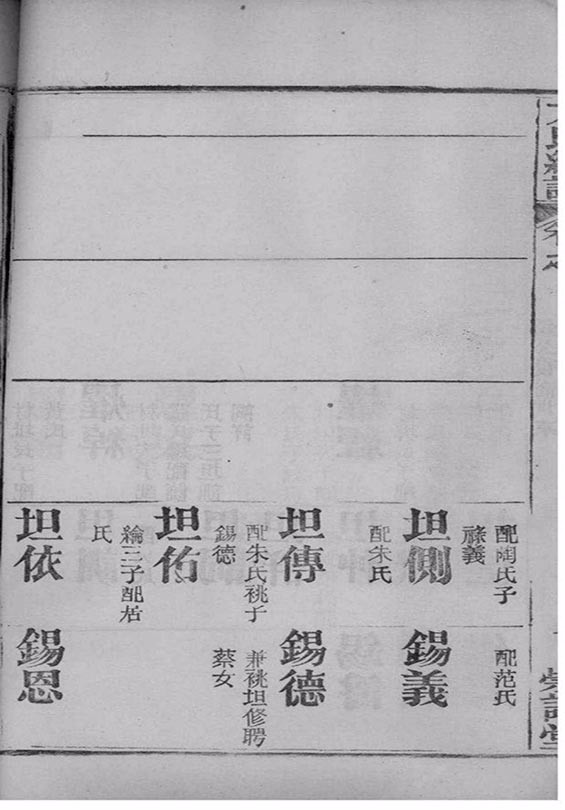 氏統譜
配陶氏子
祿義
坦側
配朱氏
坦傳
配朱氏祧子
錫德
坦佑
綸三子配
氏
坦依
配范氏
錫義
錫德
兼祧坦修聘
蔡女
錫恩